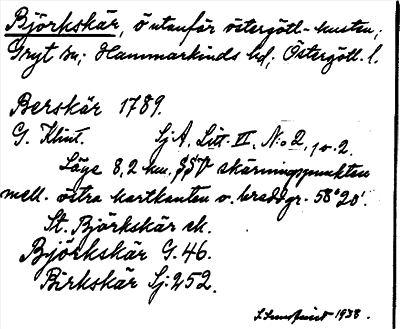 Björkskär, ö utanför östergötl-kusten,
Gryt sn; Hammarkinds hd; Östergötl. l.
Berskär 1789.
G. Klint. SjA, Litt. VI, N:o 2, 10. 2.
Läge 8,2 km. SSV skärningspunkten
mell. östra kartkanten o. breddgr. 58°20'.
St. Björkskär ek.
Björkskär G. 46.
Birkskär Sj. 252.
1938.